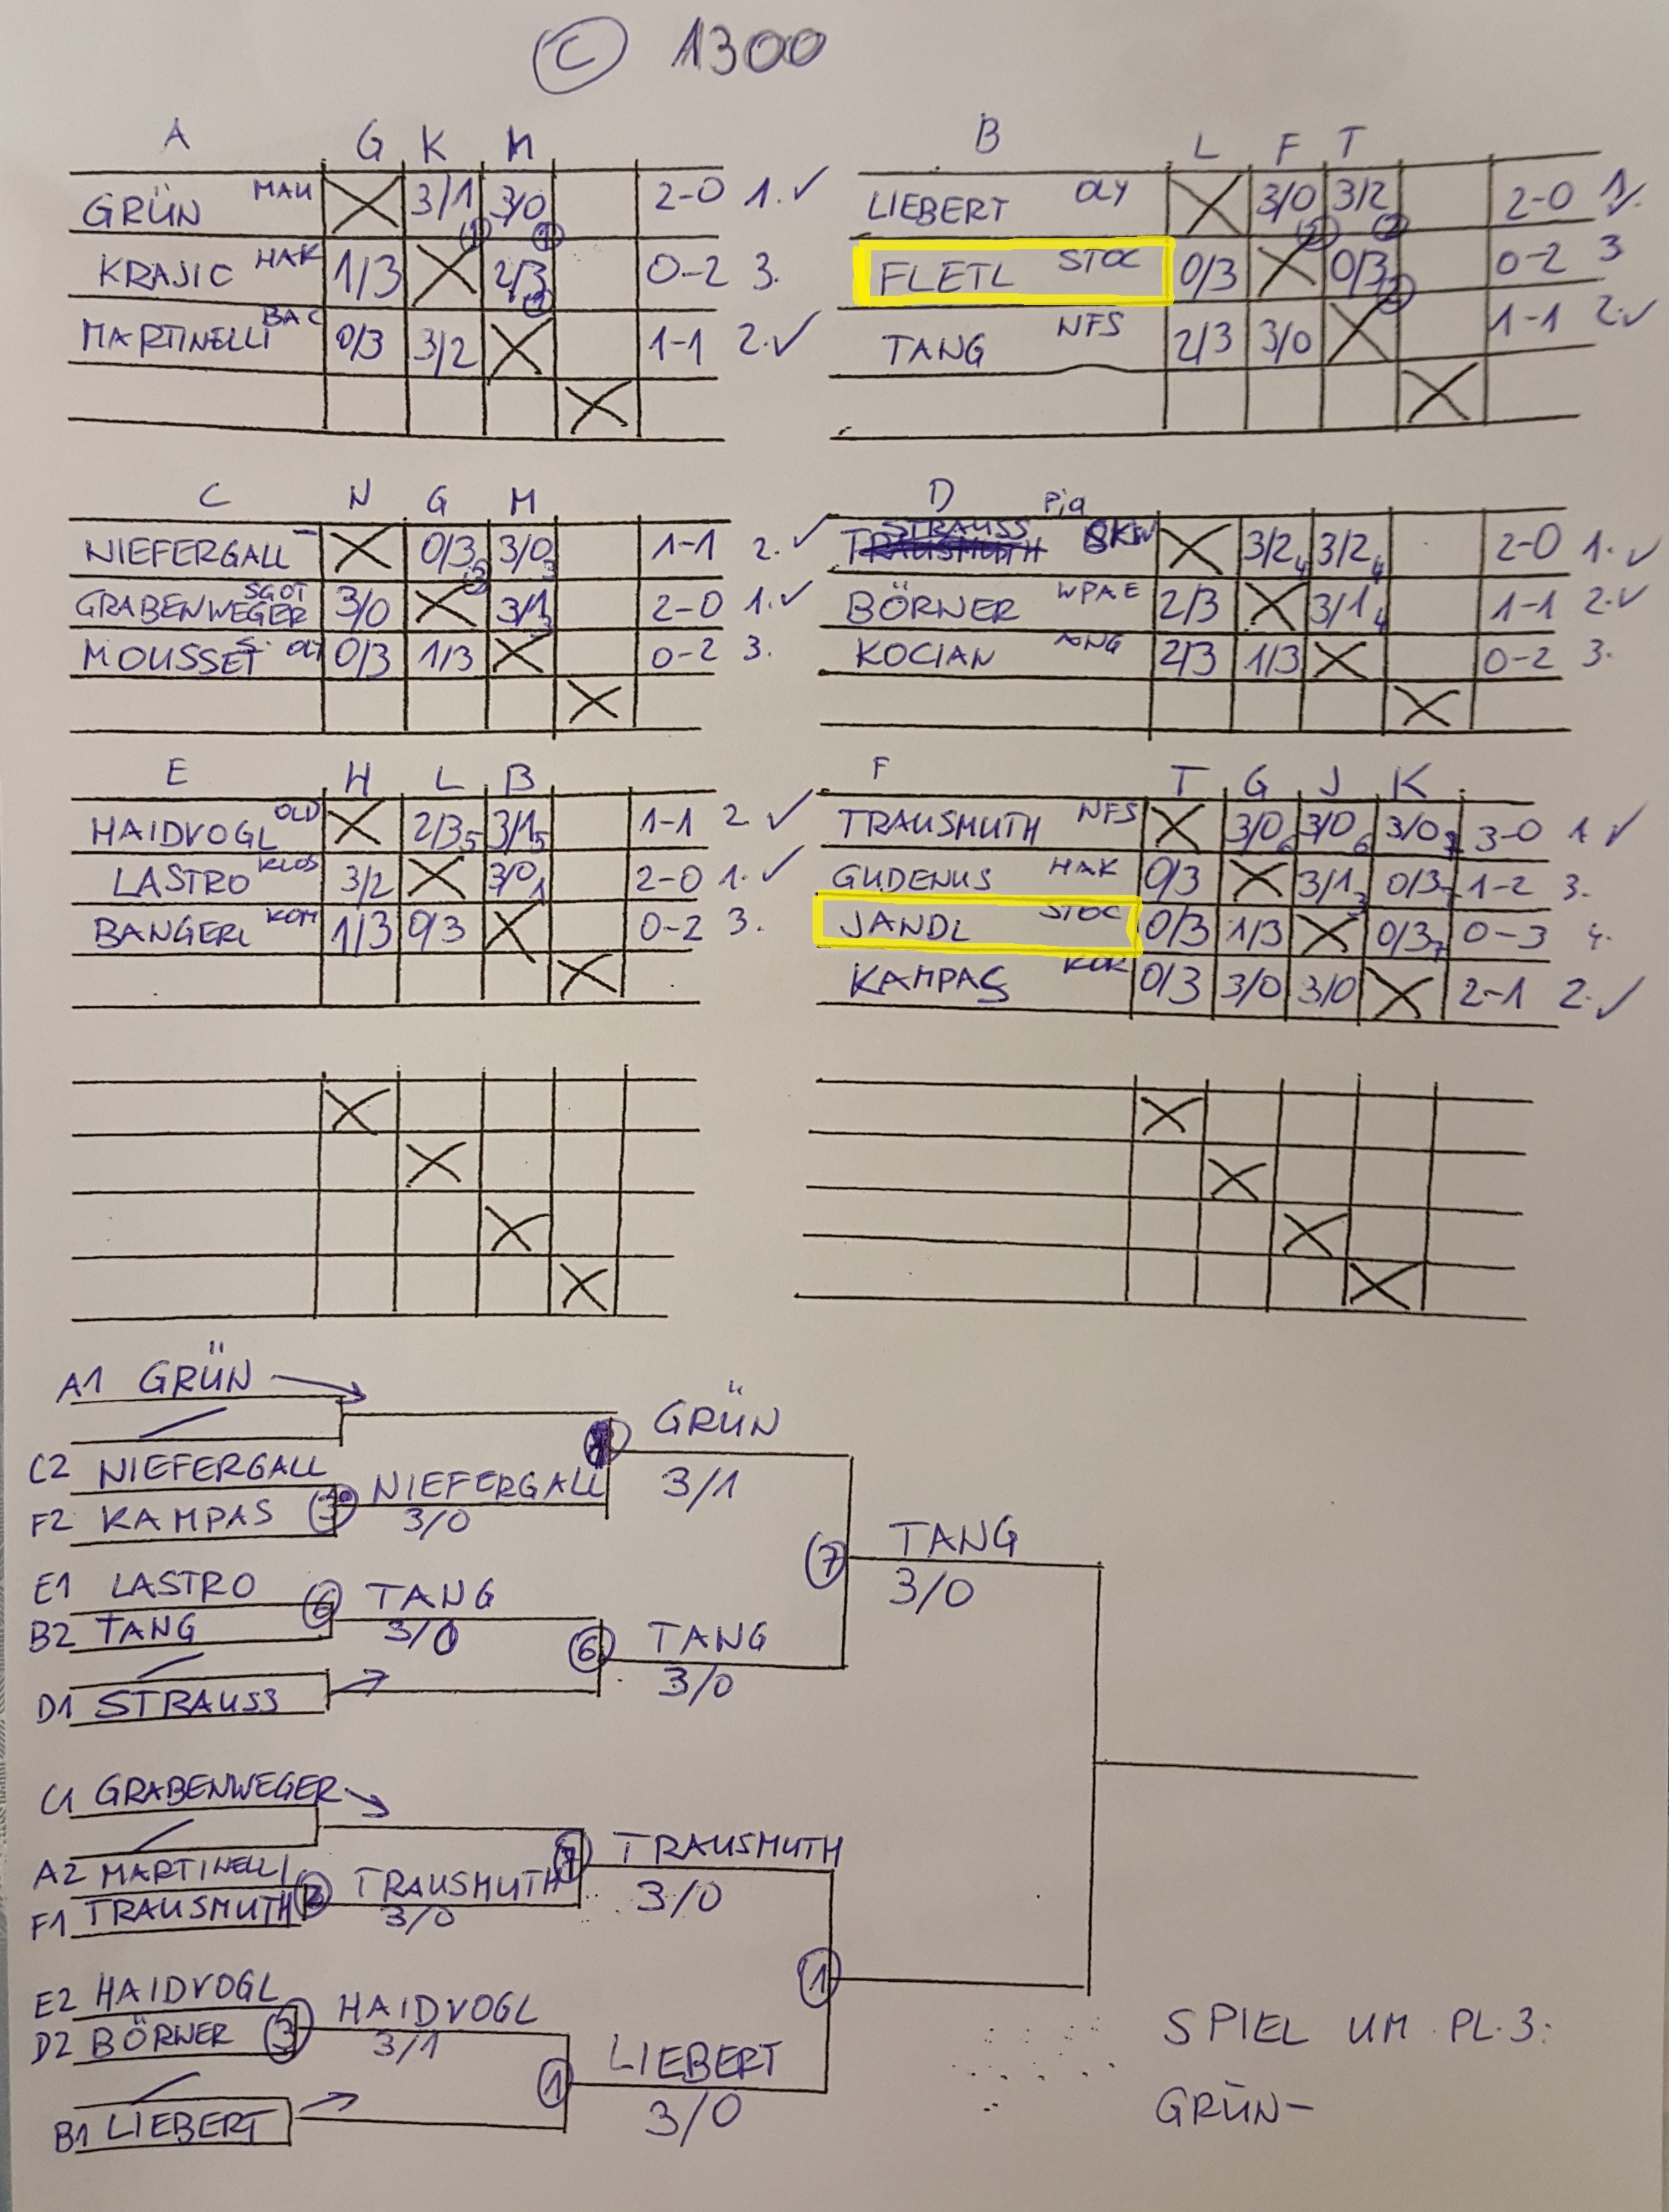 C 1300
A G K M
GRÜN MAU 3/1 3/0 2-0 1. ✓
KRAJIC HAK 1/3 2/3 0-2 3.
MARTINELLI BAC 0/3 3/2 1-1 2. ✓
B L F T
LIEBERT OLY 3/0 3/2 2-0 1. ✓
FLETL STOC 0/3 0/3 0-2 3
TANG NFS 2/3 3/0 1-1 2. ✓
C N G M
NIEFERGALL – 0/3 3/0 3 1-1 2. ✓
GRABENWEGER SGOT 3/0 3/1 3 2-0 1. ✓
MOUSSET 0/3 1/3 0-2 3.
D Pia
STRAUSS 3/2 4 3/2 4 2-0 1. ✓
BÖRNER WPAE 2/3 3/1 4 1-1 2. ✓
KOCIAN 2/3 1/3 0-2 3.
E H L B
HAIDVOGL OLD 2/3 5 3/1 5 1-1 2 ✓
LASTRO KLOS 3/2 3/0 1 2-0 1. ✓
BANGERL KOM 1/3 0/3 0-2 3.
F T G J K
TRAUSMUTH NFS 3/0 6 3/0 6 3/0 7 3-0 1. ✓
GUDENUS HAK 0/3 3/1 3 0/3 7 1-2 3.
JANDL STOC 0/3 1/3 0/3 7 0-3 4.
KAMPAS KOR 0/3 3/0 3/0 2-1 2. ✓
A1 GRÜN
C2 NIEFERGALL
F2 KAMPAS
NIEFERGALL
3/0
GRÜN
3/1
E1 LASTRO
B2 TANG
6 TANG
3/0
D1 STRAUSS
6 TANG
3/0
7 TANG
3/0
C1 GRABENWEGER
A2 MARTINELLI
F1 TRAUSMUTH
TRAUSMUTH
3/0
TRAUSMUTH
3/0
E2 HAIDVOGL
D2 BÖRNER
3 HAIDVOGL
3/1
B1 LIEBERT
1 LIEBERT
3/0
1
SPIEL UM PL. 3:
GRÜN–